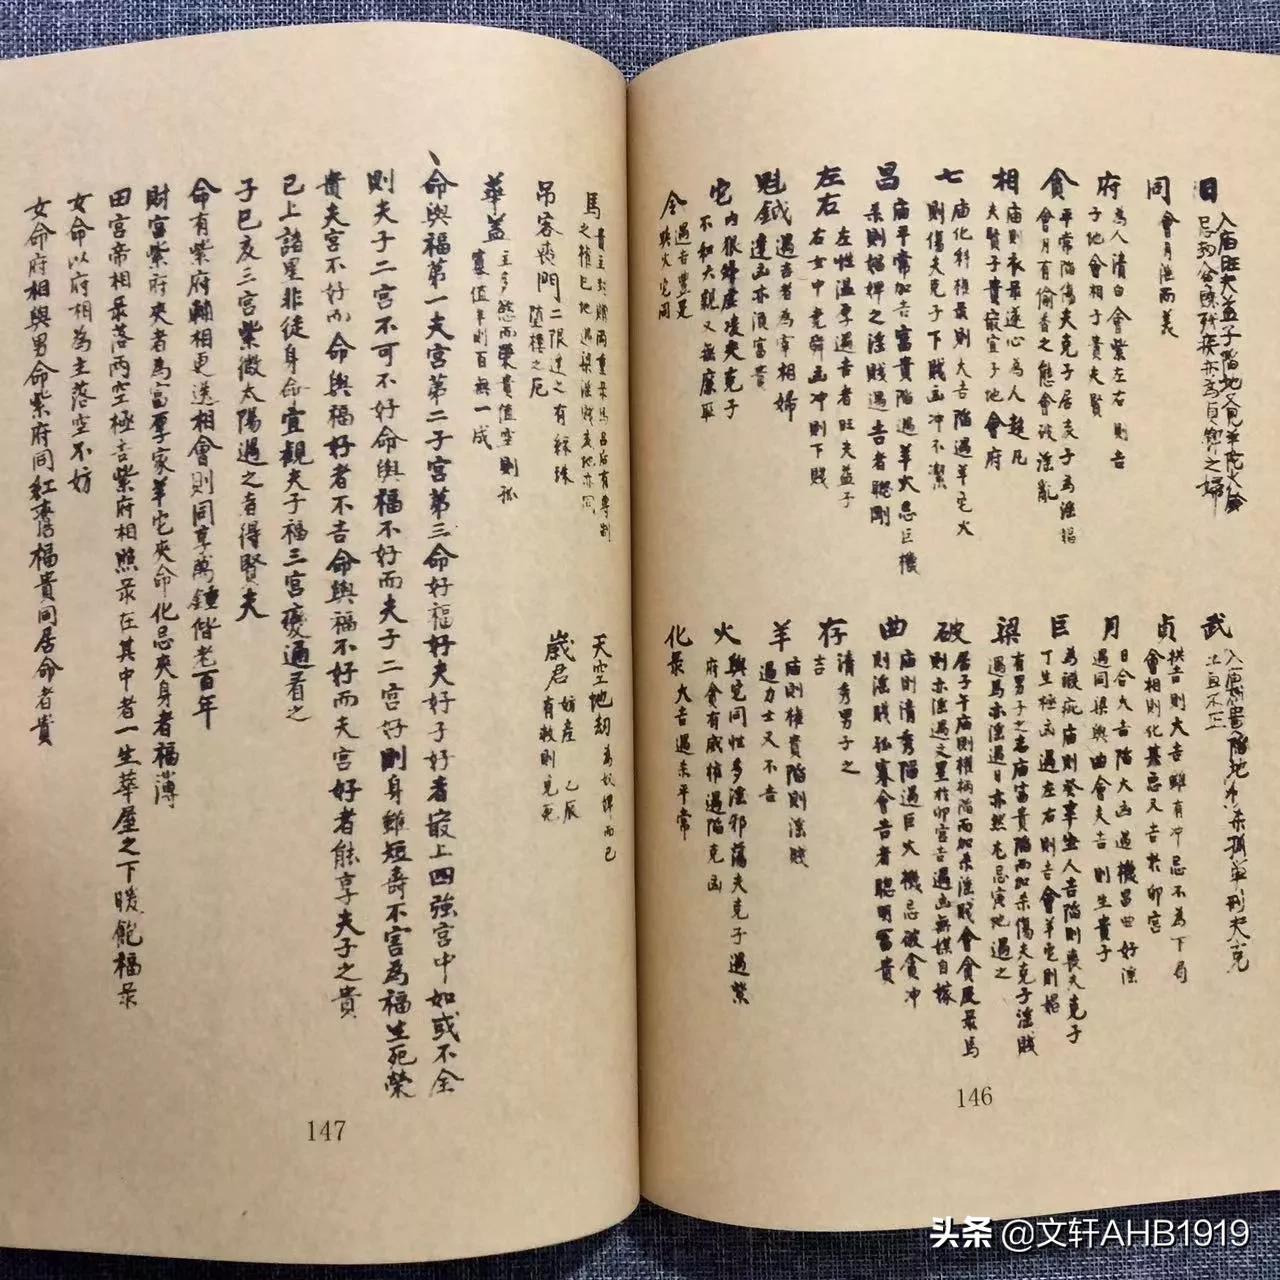 日 入庙旺夫益子陷地
同 會月淫而美
府 為人清白會紫左右則吉
子地會相子貴夫賢
貪 平常陷傷夫克子居亥子為淫娼
會月有偷香之態會破淫亂
相 庙則衣彔遂心為人
夫賢子貴寂宜子地會府
七 庙化科權彔則大吉陷遇羊它火
則傷夫克子下賤凶冲不潔
昌 庙平常加吉富貴陷遇羊火忌巨機
杀則娼婢之淫賤遇吉者聰剛
左右 左性温厚遇吉者旺夫益子
右女中堯舜凶冲則下賤
魁鉞 遇吉者為宰相婦
逢凶亦須富貴
它 内狠虚凌夫克子
不和六親又無廉耻
令 遇吉豊足
與火它同
武
貞 拱吉則大吉雖有冲忌不為下局
會相則化甚忌又吉於卯宫
月 日合大吉陷大凶遇機昌曲好淫
遇同梁與曲會夫吉則生貴子
巨 為瑕疵庙則癸辛生人吉陷則喪夫克子
丁生極凶遇左右則吉會羊它則娼
梁 有男子之志庙富貴陷而加杀傷夫克子淫賤
遇馬亦淫遇日亦然尤忌寅地遇之
破 居子午庙則權柄陷而加杀淫賤會貪及彔馬
則亦淫遇文星於卯宫吉遇凶無媒自嫁
曲 庙則清秀陷遇巨火機忌破貪冲
則淫賤孤寡會吉者聰明富貴
存 清秀男子之
吉
羊 庙則權貴陷則淫賤
遇力士又不吉
火 與它同性多淫邪蕩夫克子遇紫
府貪有威權遇陷克凶
化彔 大吉遇杀平常
146
馬 貴主
之權巳地遇梁淫賤亥地亦同
吊客丧門 二限逢之有綠珠
堕樓之厄
華盖 主多然而榮貴值空則孤
寡值羊則百無一成
天空地劫 為奴婢而已
歲君 妨產 乙辰
有救則見死
命與福第一夫宫第二子宫第三命好福好夫好子好者寂上四强宫中如或不全
則夫子二宫不可不好命與福不好而夫子二宫好則身雖短壽不害為福生死榮
貴夫宫不好而命與福好者不吉命與福不好而夫宫好者能享夫子之貴
已上諸星非徒身命宜觀夫子福三宫變通看之
子巳亥三宫紫微太陽遇之者得賢夫
命有紫府輔相更迭相會則同享萬鍾偕老百年
財富紫府夾者為富厚家羊它夾命化忌夾身者福薄
田宫帝相彔落兩空極吉紫府相照彔在其中者一生華屋之下暖飽福彔
女命以府相為主落空不妨
女命府相與男命紫府同紅鸞福貴同居命者貴
147
头条 @文轩AHB1919